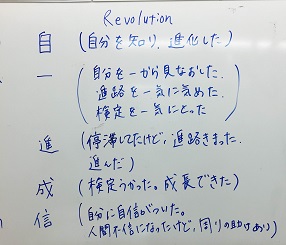 Revolution
自 (自分を知り、進化した)
一 (自分を一から見なおした.
進路を一気に気めた.
検定を一気にとった
進 (停滞してたけど、進路きまった.
進んだ)
成 (検定うかった。成長できた)
信 (自分に自信がついた。
人間不信になったけど、周りの助けあり)